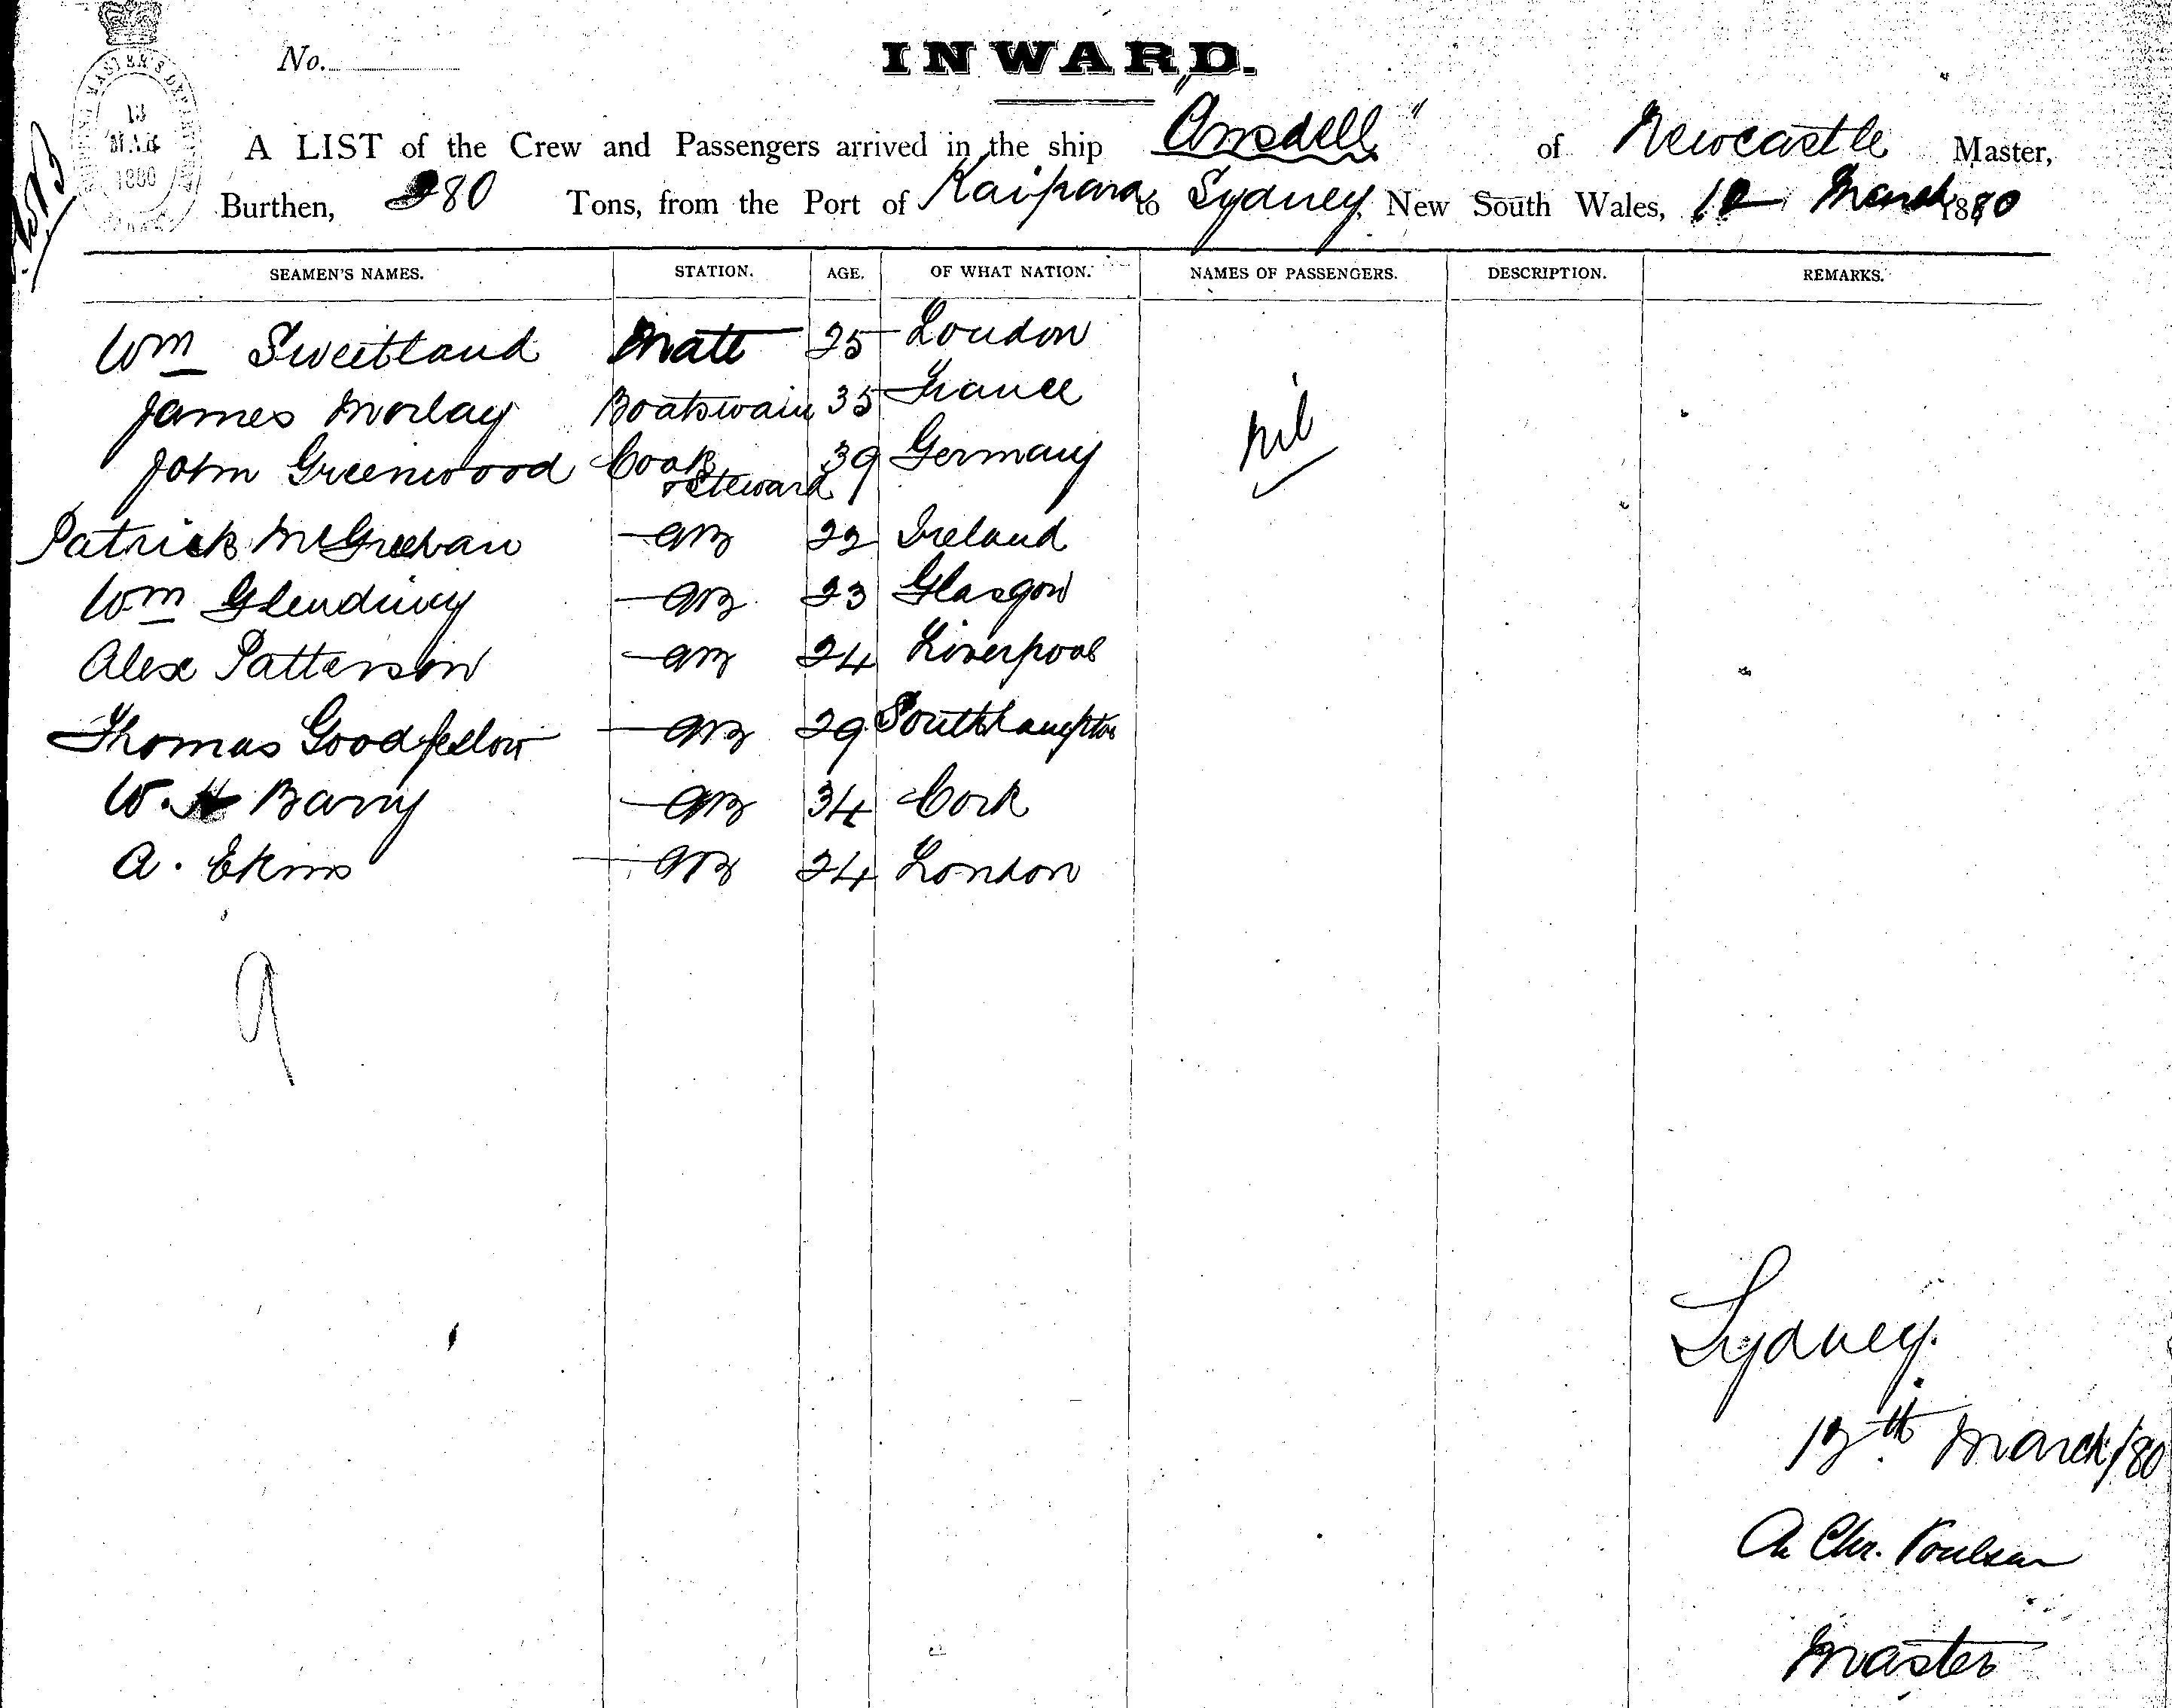 No.
INWARD.
13
MAR
1880
A LIST of the Crew and Passengers arrived in the ship "Ansdell" of Newcastle Master,
Burthen, 280 Tons, from the Port of Kaipara to Sydney, New South Wales, 12 March 1880
SEAMEN'S NAMES. STATION. AGE. OF WHAT NATION. NAMES OF PASSENGERS. DESCRIPTION. REMARKS.
Wm Sweetland Mate 25 London
James Morlay Boatswain 35 France
nil
John Greenwood Cook 39 Germany
& Steward
Patrick AB 22 Ireland
Wm Glendinny AB 23 Glasgow
Alex Patterson AB 24 Liverpool
Thomas Goodfellow AB 29 Southhampton
W. H Barry AB 34 Cork
A. Ekins AB 24 London
9
Sydney.
13th March/80
Chr. Poulsen
Master